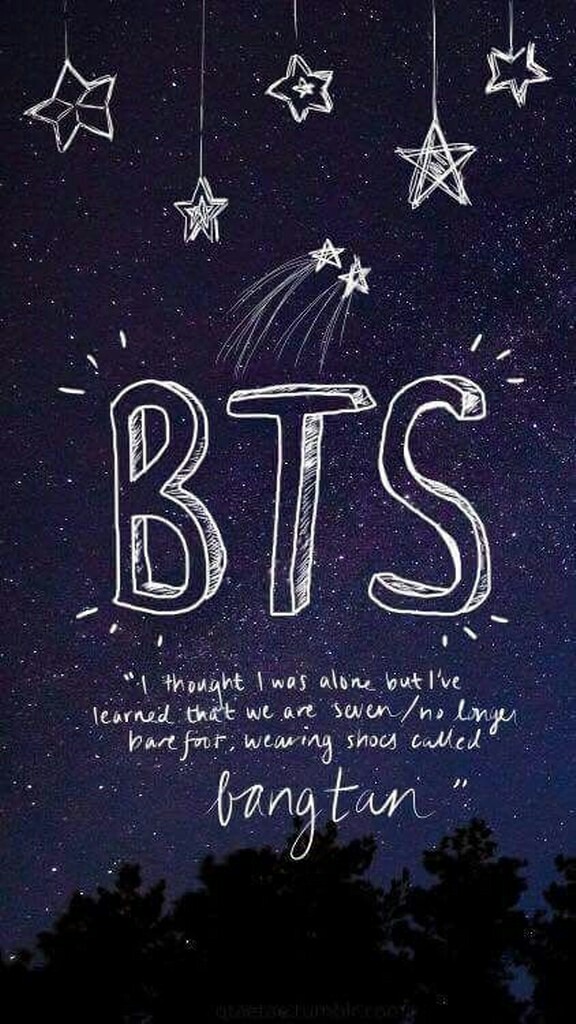 BTS
"I thought I was alone but I've
learned that we are seven/no longer
barefoot, wearing shoes called
bangtan"